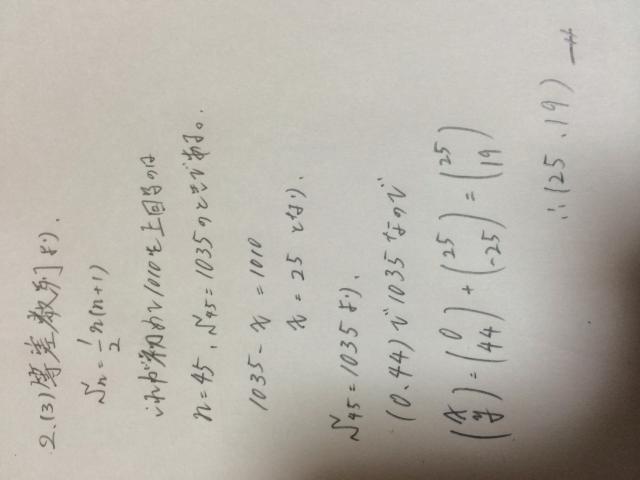 2.(3)等差数列より、
Sn = 1/2 n(n+1)
これが初めて1010を上回るのは
n=45、S45=1035のときである。
1035-x=1010
x=25 となり、
S45=1035より、
(0、44)で1035なので
(x y) = (0 44) + (25 -25) = (25 19)
∴(25、19)